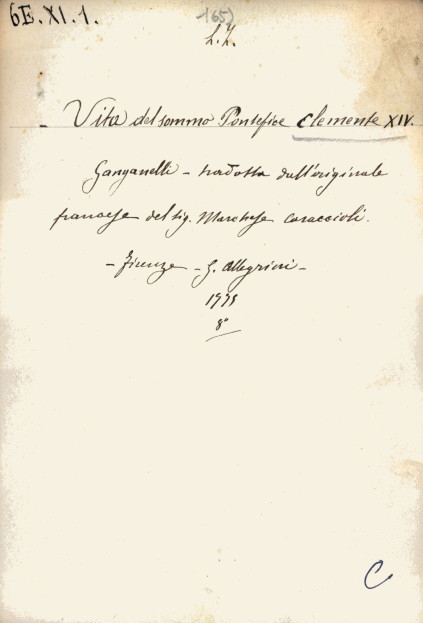 6E.XI.1.
165)
L.Z.
- Vita del sommo Pontefice Clemente XIV.
Ganganelli - tradotta dall'originale
francese del sig. Marchese Caraccioli.
- Firenze - G. Allegrini -
1775
8°
C